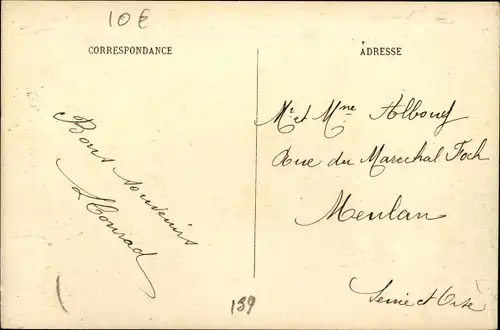 10€
CORRESPONDANCE
ADRESSE
Bons souvenirs
LConrad
Mr et Mme Albouy
Rue du Marechal Foch
Meulan
Seine et Oise
139